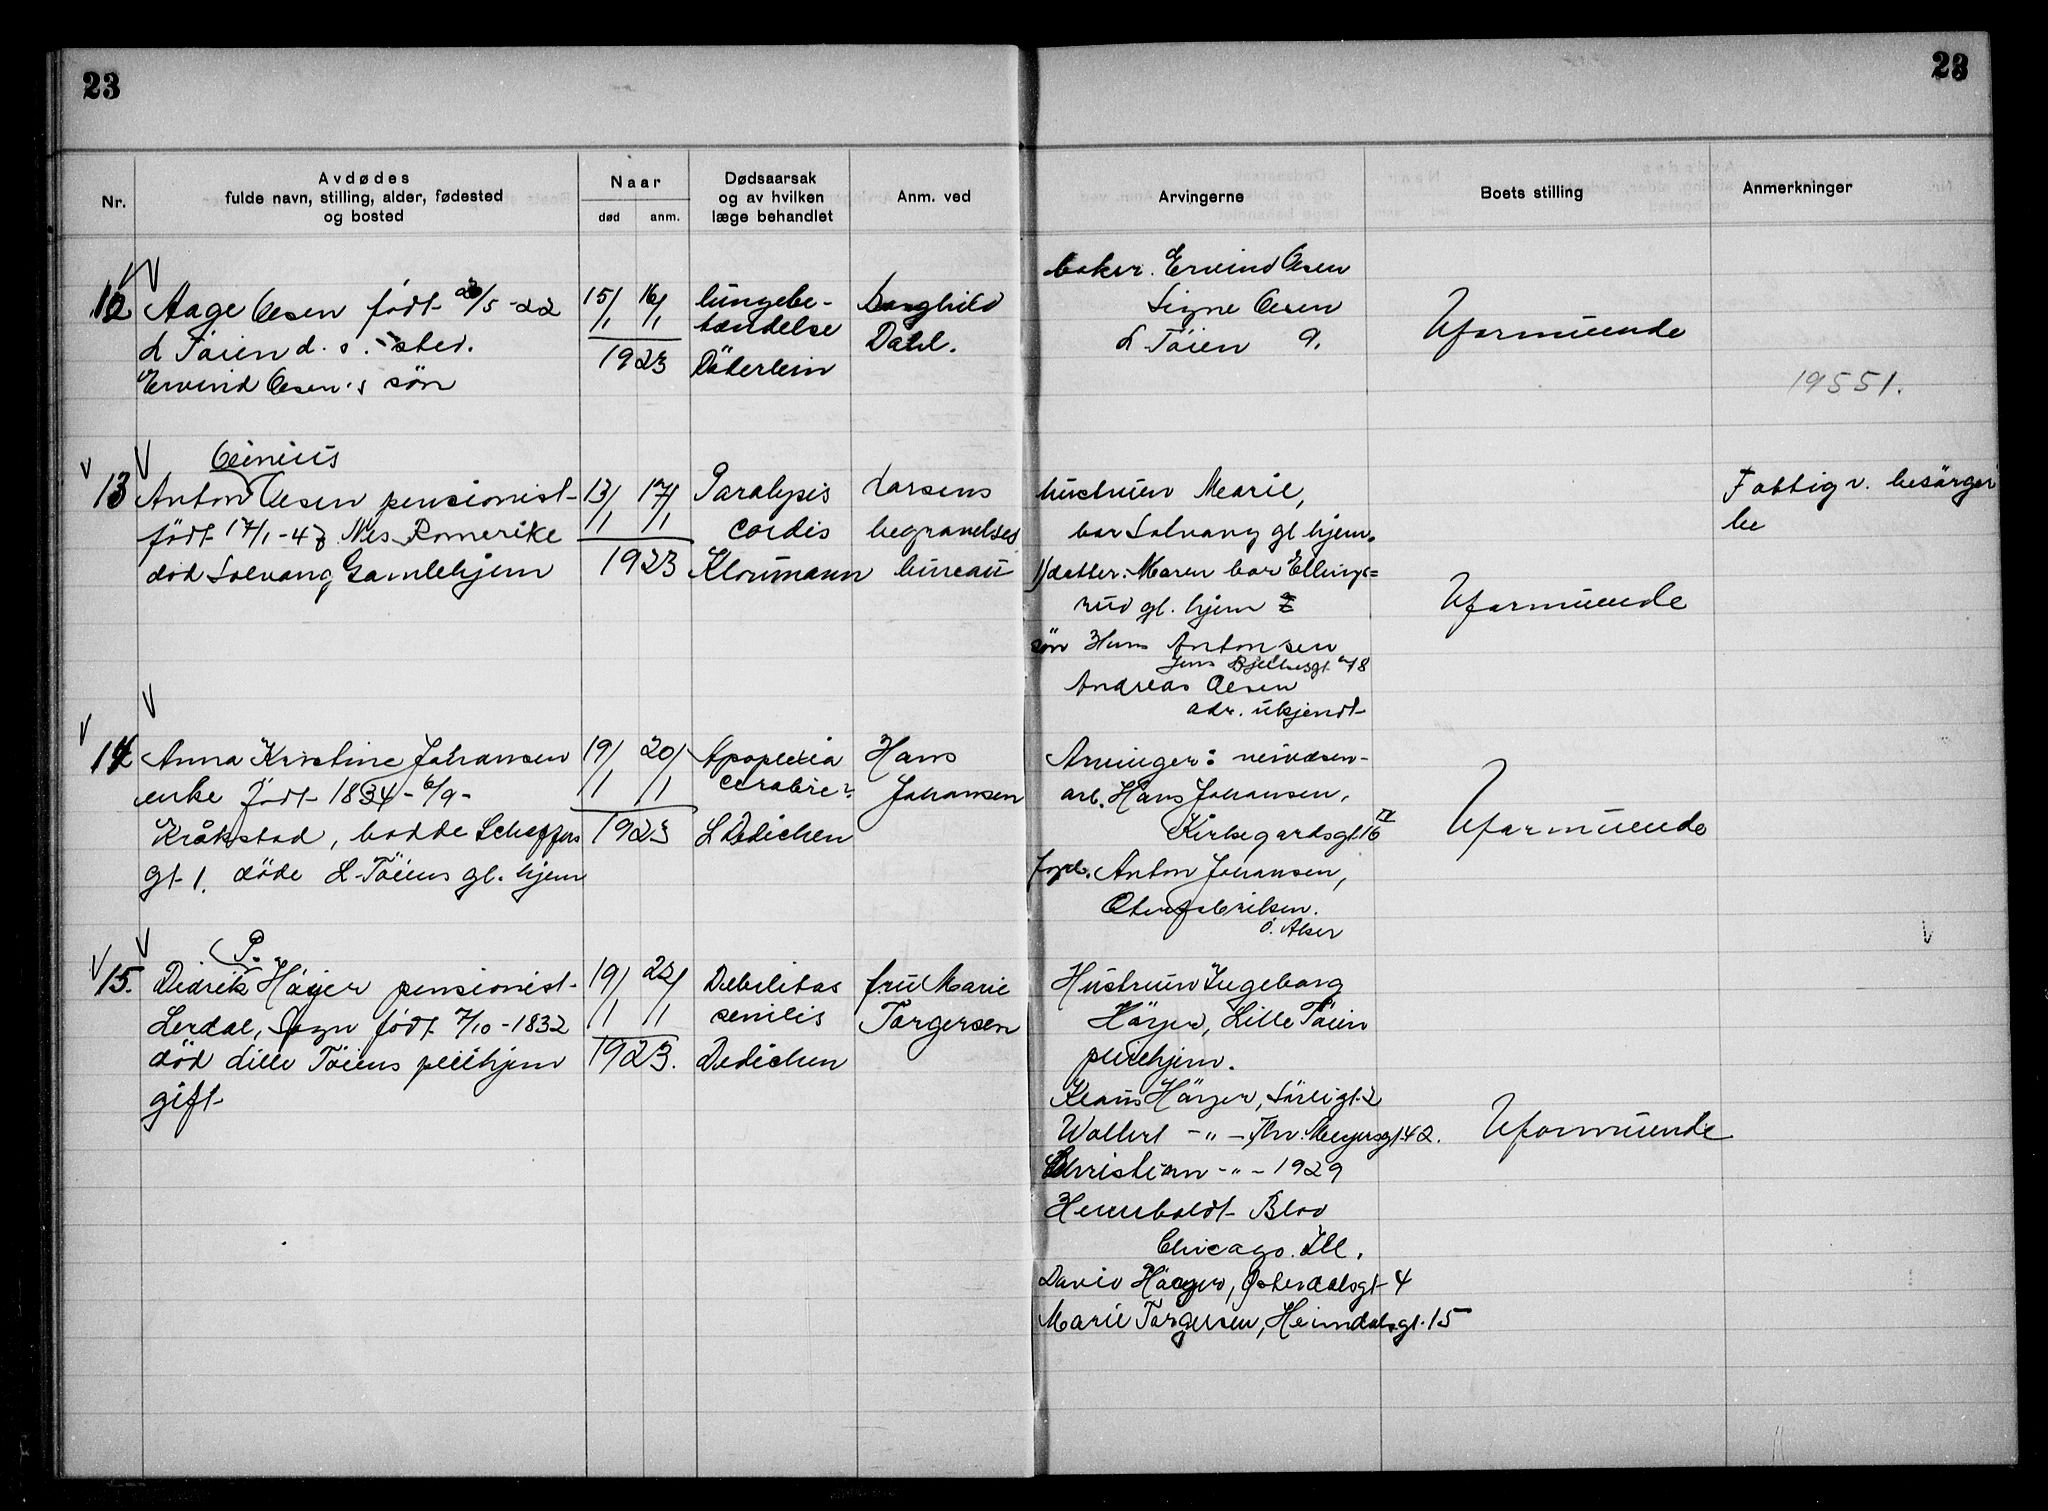 23
23
Nr.
Avdødes
fulde navn, stilling, alder, fødested
og bosted
Naar
død
anm.
Dødsaarsak
og av hvilken
læge behandlet
Anm. ved
Arvingerne
Boets stilling
Anmerkninger
12
Aage Olsen født /5-22
L Töien d. s. sted.
Ervind Olsen's sön
15/1 16/1
1923
lungebe-
tændelse
Döderlein
Borghild
Dahl.
baker. Ervind Olsen
Signe Olsen
L Töien 9.
Uformuende
19551.
13
Anton Olsen pensionist
født 17/1-47 Nes Romerike
död Solvang Gamlehjem
13/1 17/1
1923
Paralysis
cordis
Kloumann
Larsens
begravelses
bureau
hustruen Marie,
bor Solvang gl hjem.
1) datter: Maren bor Ellings=
rud gl. hjem
sön Hans Antonsen
Jens Bjelkesgt 48
Andreas Olsen
adr. ukjendt
Uformuende
Fattigv. besörger
be
14
Anna Kristine Johansen
enke født 1834-6/9-
Kråkstad, bodde Scheffers
gt 1. döde L-Töiens gl. hjem
19/1 20/1
1923
Apoplexia
cerebri
L Dedichen
Hans
Johansen
Arvinger: veivæsen-
arb. Hans Johansen,
Kirkegardsgt 16 IV
Anton Johansen,
Ö. Aker
Uformuende
15.
P.
Didrik Häyer pensionist
Lerdal, Sogn født 7/10-1832
död Lille Töiens pleiehjem
gift
19/1 22/1
1923.
Debilitas
senilis
Dedichen
fru Marie
Torgersen
Hustruen Ingeborg
Häyer, Lille Töien
pleiehjem.
Klaus Häyer, Sörligt 2
Wollert -"- Thv. Meyersgt 42.
Christian -"- 1929
Humboldt Blvd
Chicago. Ill.
David Häyer, Österdalsgt 4
Marie Torgersen, Heimdalsgt. 15
Uformuende